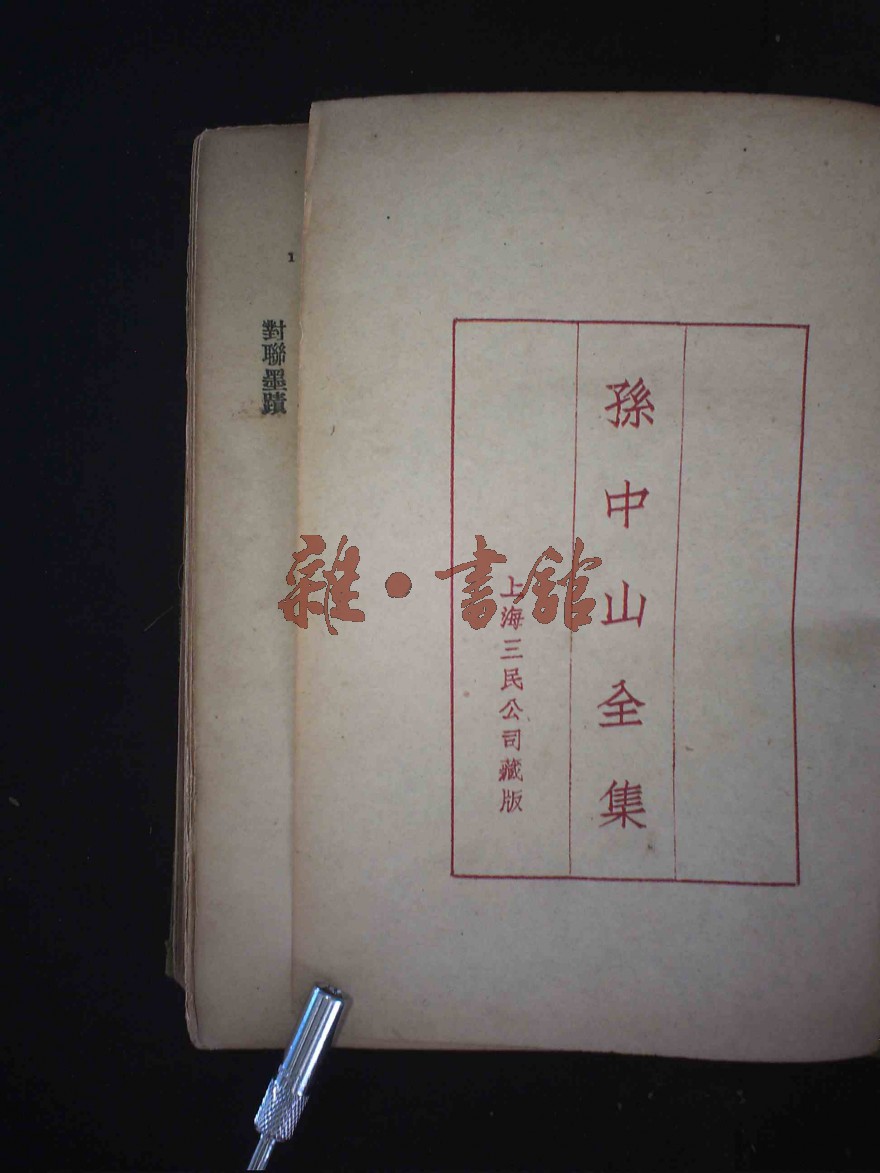 孫中山全集
上海三民公司藏版
1
對聯墨蹟
雜·書館